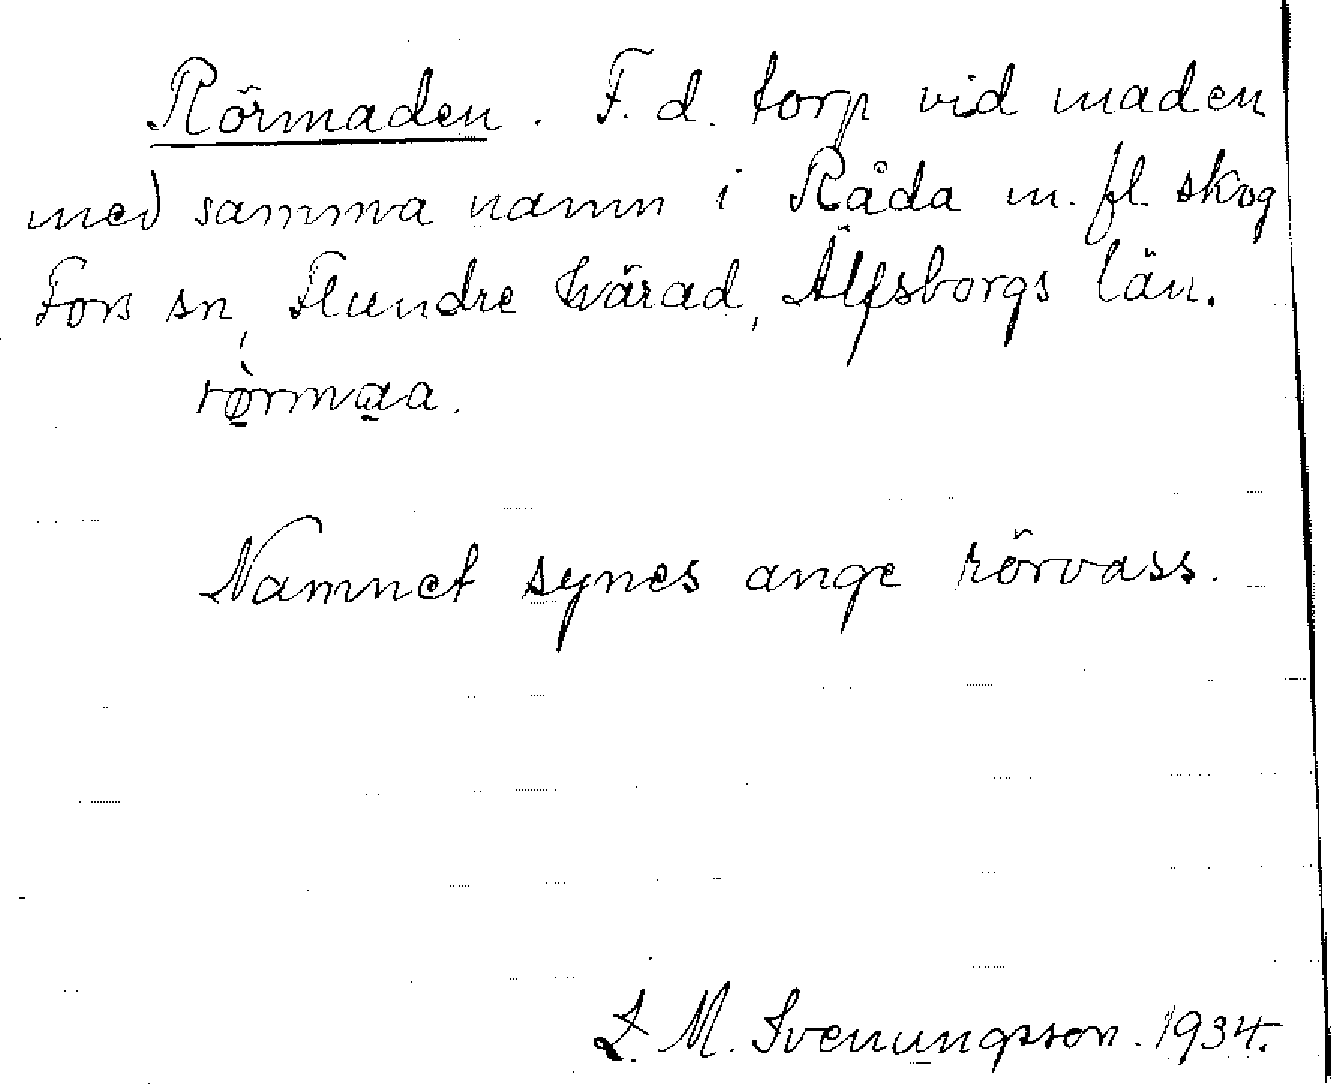 Rörmaden. F. d. torp vid maden
med samma namn i Råda m. fl. skog
Fors sn, Flundre härad, Älfsborgs län.
rø̀rmaa.
Namnet synes ange rörvass.
L. M. Svenungsson. 1934.